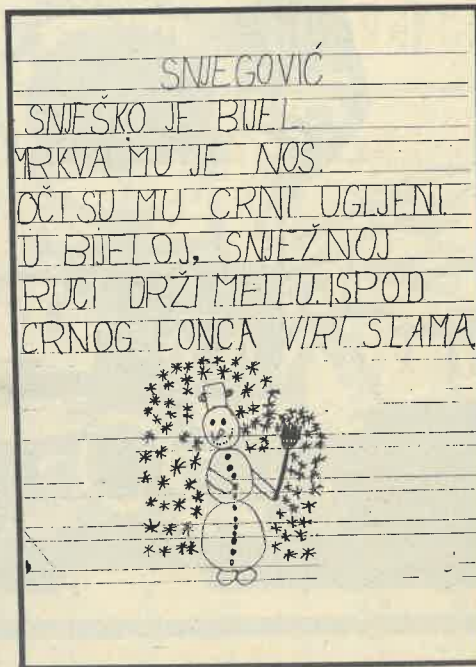 SNJEGOVIĆ
SNJEŠKO JE BIJEL.
MRKVA MU JE NOS.
OČI SU MU CRNI UGLJENI.
U BIJELOJ, SNJEŽNOJ
RUCI DRŽI METLU. ISPOD
CRNOG LONCA VIRI SLAMA.